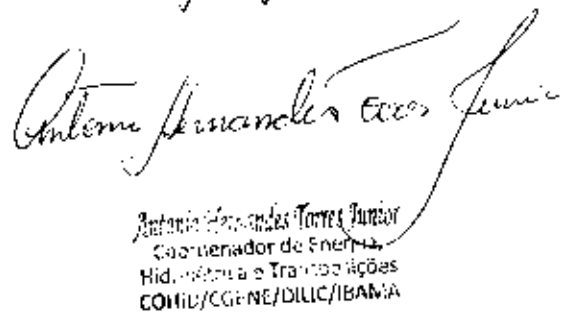 Antonio Hernandes Torres Junior
Antonio Hernandes Torres Junior
Coordenador de Energia,
Hidrelétrica e Transposições
COHID/CGENE/DILIC/IBAMA